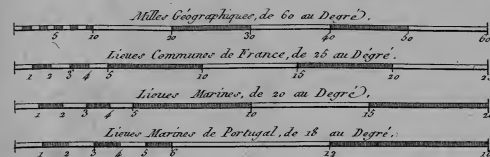 Milles Géographiques, de 60 au Degré.
5 10 20 30 40 50 60
Lieues Communes de France, de 25 au Dégré.
1 2 3 4 5 10 15 20
Lieues Marines, de 20 au Degré.
1 2 3 4 5 10 15
Lieues Marines de Portugal, de 18 au Degré.
1 2 3 4 5 6 12